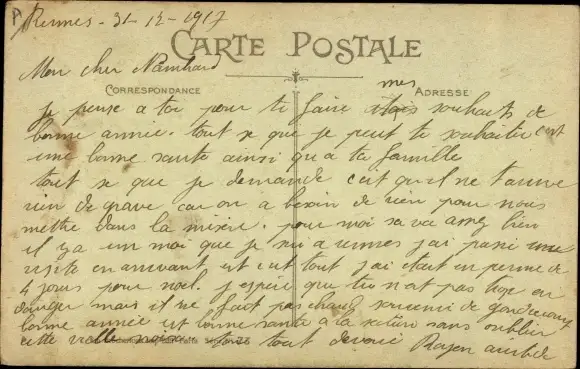 Rennes - 31-12-1917
CARTE POSTALE
Mon cher
CORRESPONDANCE
ADRESSE
mes
Je pense a toi pour te faire souhaits de
bonne année. tout se que je peut te souhaiter c'est
une bonne sante ainsi qu'a ta famille
tout se que je demande c'est qu'il ne t'arrive
rien de grave car on a besoin de rien pour nous
mettre dans la misère. pour moi sa va assez bien
il y a un moi que je sui a rennes j'ai passé une
visite en arrivant et c'est tout j'ai etait en perme de
4 jours pour noel. j'espere que tu n'at pas trop en
danger mais il ne fait pas chaud souvenir de
bonne année et bonne sante a la sans oublier
cette vielle ton tout devoué